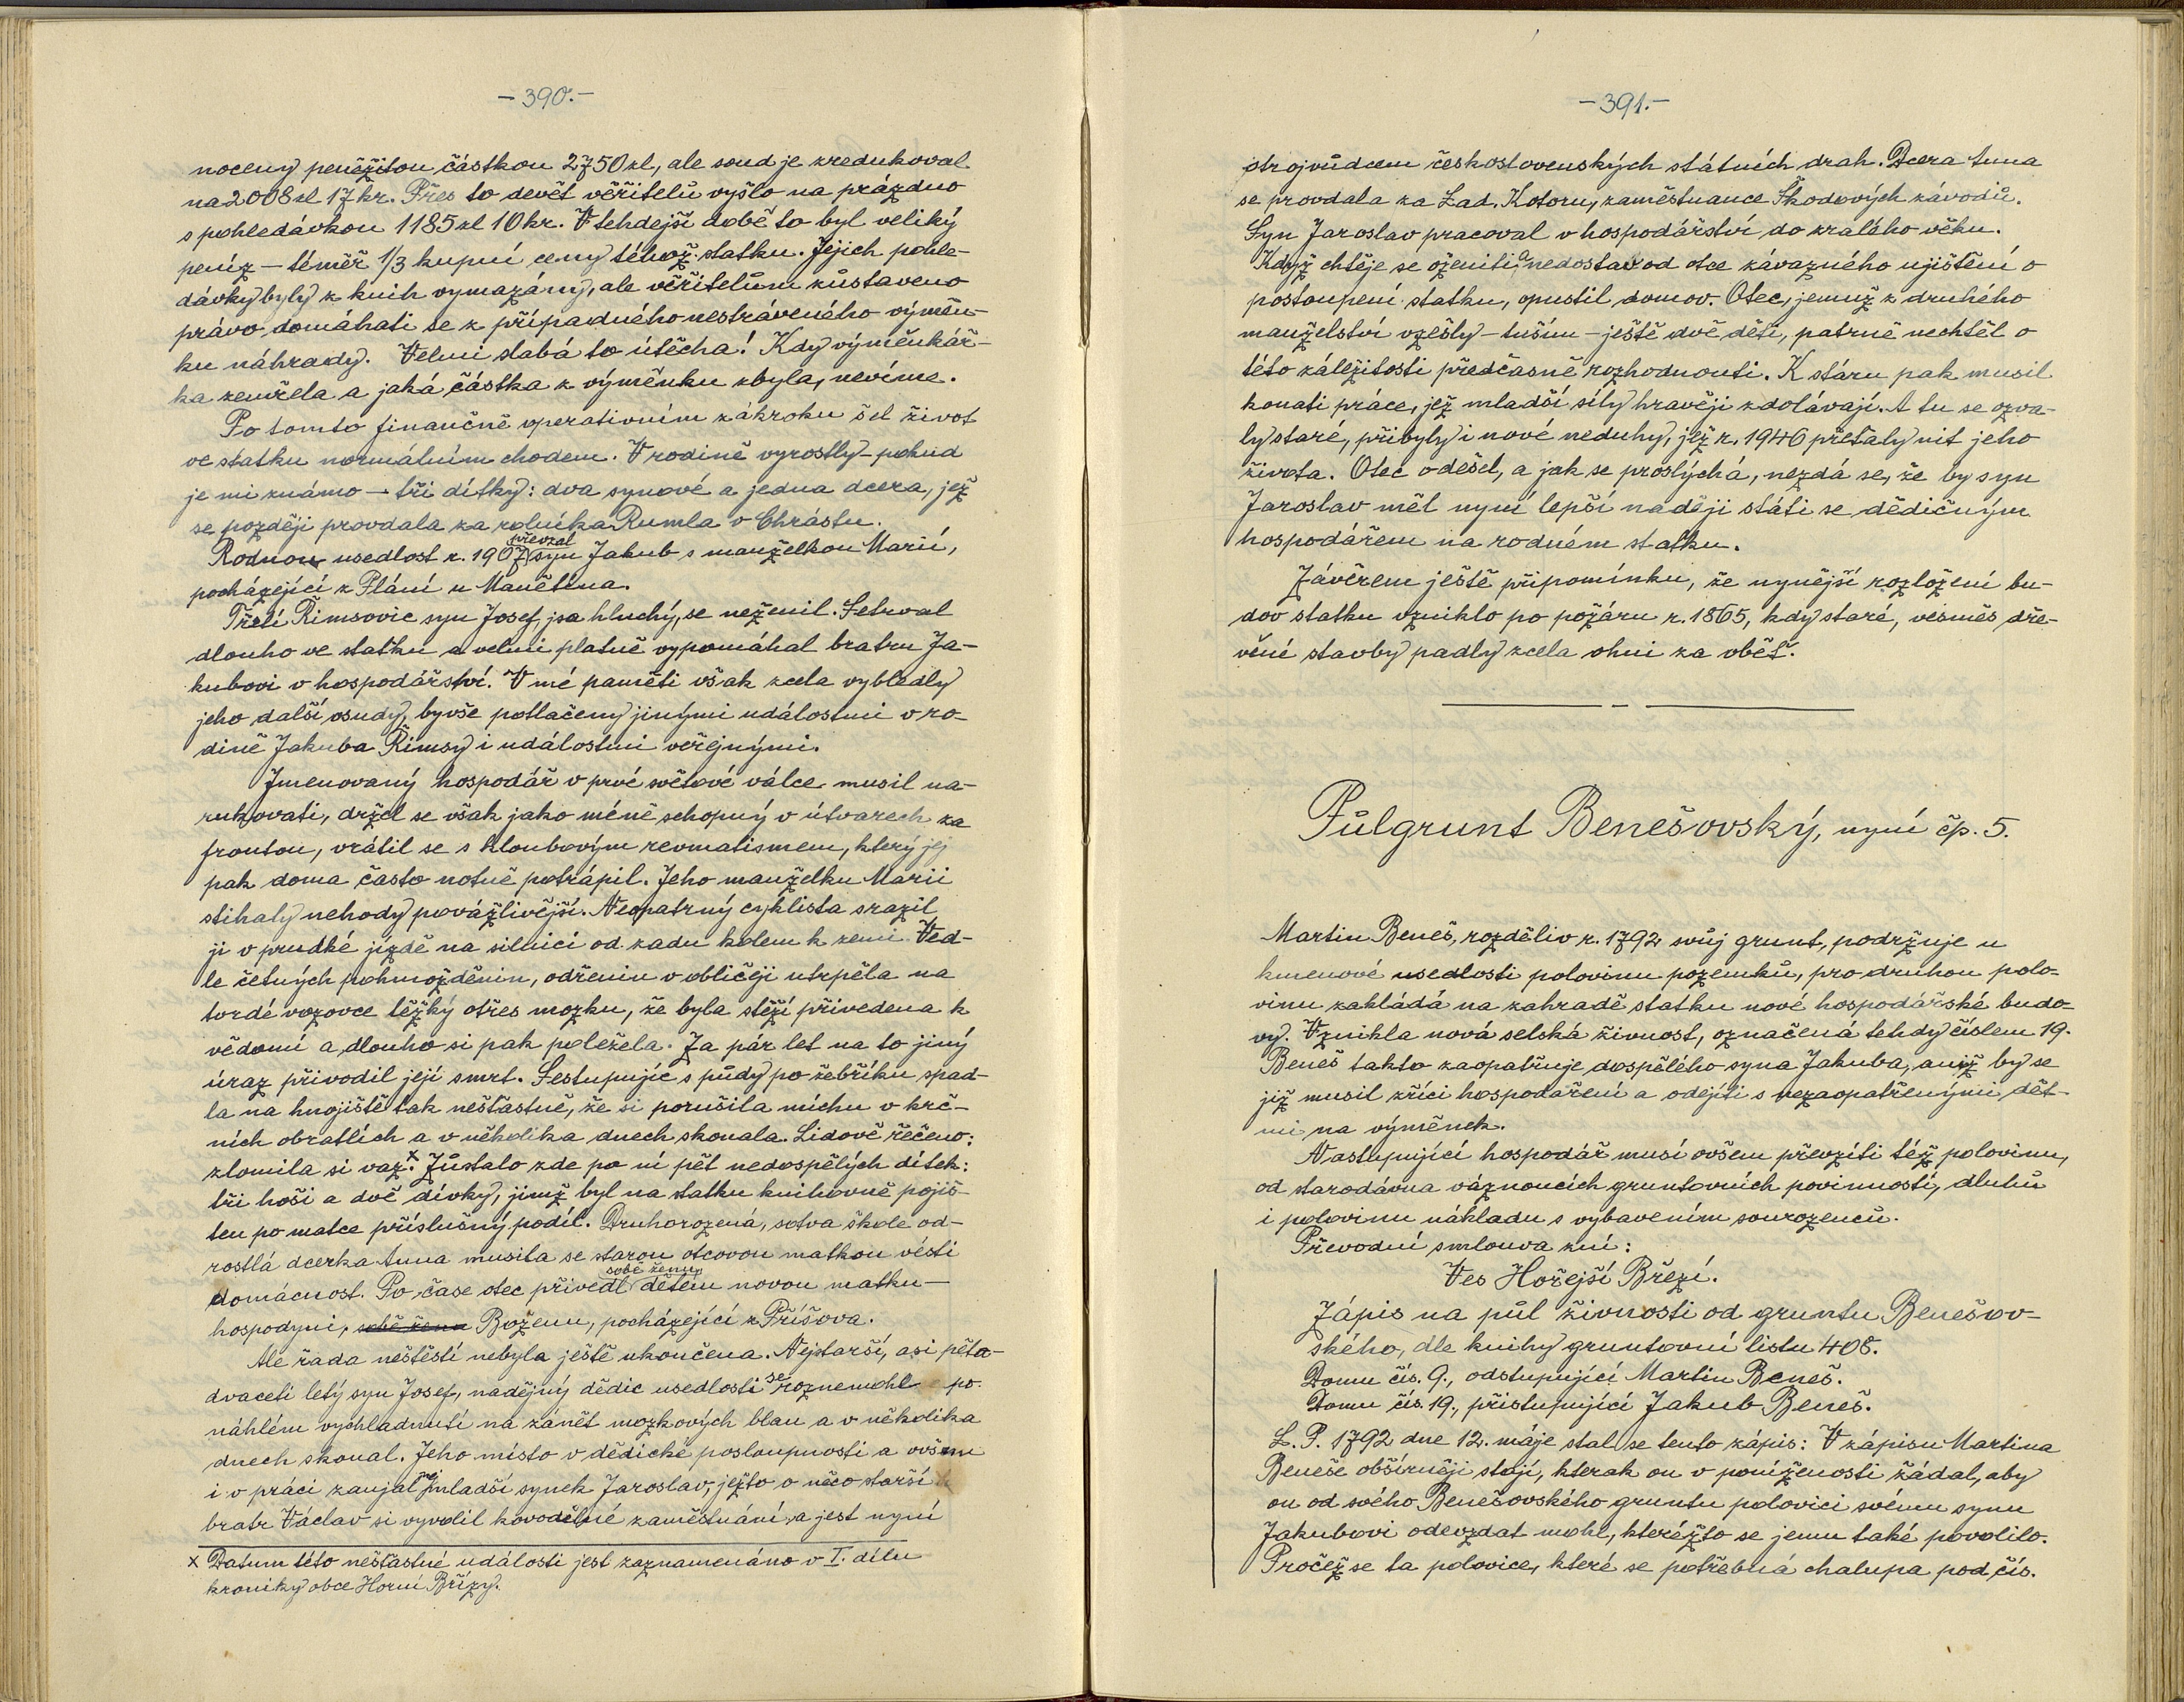 -390.-
noceny peněžitou částkou 2750 zl, ale soud je zredukoval
na 2008 zl 17 kr. Přes to devět věřitelů vyšlo na prázdno
s pohledávkou 1185 zl 10 kr. V tehdejší době to byl veliký
peníz - téměř 1/3 kupní ceny téhož statku. Jejich pohle-
dávky byly z knih vymazány, ale věřitelům zůstaveno
právo domáhati se z případného nestráveného výměn-
ku náhrady. Velmi slabá to útěcha! Kdy výměnkář-
ka zemřela a jaká částka z výměnku zbyla, nevíme.
Po tomto finančně operativním zákroku šel život
ve statku normálním chodem. V rodině vyrostly - pokud
je mi známo - tři dítky: dva synové a jedna dcera, jež
se později provdala za rolníka Rumla v Chrástu.
Rodnou usedlost r. 1907 převzal syn Jakub s manželkou Marií,
pocházející z Plání u Manětína.
Třetí Římsovic syn Josef, jsa hluchý, se neženil. Setrval
dlouho ve statku a velmi platně vypomáhal bratru Ja-
kubovi v hospodářství. V mé paměti však zcela vybledly
jeho další osudy, byvše potlačeny jinými událostmi v ro-
dině Jakuba Římsy i událostmi veřejnými.
Jmenovaný hospodář v prvé světové válce musil na-
rukovati, držel se však jako méně schopný v útvarech za
frontou, vrátil se s kloubovým revmatismem, který jej
pak doma často notně potrápil. Jeho manželku Marii
stihaly nehody povážlivější. Neopatrný cyklista srazil
ji v prudké jízdě na silnici od zadu kolem k zemi. Ved-
le četných pohmožděnin, odřenin v obličeji utrpěla na
tvrdé vozovce těžký otřes mozku, že byla stěží přivedena k
vědomí a dlouho si pak poležela. Za pár let na to jiný
úraz přivodil její smrt. Sestupujíc s půdy po žebříku spad-
la na hnojiště tak nešťastně, že si porušila míchu v krč-
ních obratlích a v několika dnech skonala. Lidově řečeno:
zlomila si vaz.x Zůstalo zde po ní pět nedospělých dítek:
tři hoši a dvě dívky, jimž byl na statku knihovně pojiš-
těn po matce příslušný podíl. Druhorozená, sotva škole od-
rostlá dcerka Anna musila se starou otcovou matkou vésti
domácnost. Po čase otec přivedl sobě ženu, dětem novou matku -
hospodyni, sobě ženu Boženu, pocházející z Příšova.
Ale řada neštěstí nebyla ještě ukončena. Nejstarší, asi pěta-
dvaceti letý syn Josef, nadějný dědic usedlosti se roznemohl po
náhlém vychladnutí na zánět mozkových blan a v několika
dnech skonal. Jeho místo v dědické posloupnosti a ovšem
i v práci zaujal nejmladší synek Jaroslav, ježto o něco starší
bratr Václav si vyvolil kovodělné zaměstnání a jest nyní
x Datum této nešťastné události jest zaznamenáno v I. dílu
kroniky obce Horní Břízy.
-391.-
strojvůdcem československých státních drah. Dcera Anna
se provdala za Lad. Kotoru, zaměstnance Škodových závodů.
Syn Jaroslav pracoval v hospodářství do zralého věku.
Když chtěje se oženiti a nedostav od otce závazného ujištění o
postoupení statku, opustil domov. Otec, jemuž z druhého
manželství vzešly - tuším - ještě dvě děti, patrně nechtěl o
této záležitosti předčasně rozhodnouti. K stáru pak musil
konati práce, jež mladší síly hravěji zdolávají. A tu se ozva-
ly staré, přibyly i nové neduhy, jež r. 1946 přeťaly nit jeho
života. Otec odešel, a jak se proslýchá, nezdá se, že by syn
Jaroslav měl nyní lepší naději státi se dědičným
hospodářem na rodném statku.
Závěrem ještě připomínku, že nynější rozložení bu-
dov statku vzniklo po požáru r. 1865, kdy staré, vesměs dře-
věné stavby padly zcela ohni za oběť.
Půlgrunt Benešovský, nyní čp. 5.
Martin Beneš, rozděliv r. 1792 svůj grunt, podržuje u
kmenové usedlosti polovinu pozemků, pro druhou polo-
vinu zakládá na zahradě statku nové hospodářské budo-
vy. Vznikla nová selská živnost, označená tehdy číslem 19.
Beneš takto zaopatřuje dospělého syna Jakuba, aniž by se
již musil zříci hospodaření a odejíti s nezaopatřenými dět-
mi na výměnek.
Nastupující hospodář musí ovšem převzíti též polovinu,
od starodávna váznoucích gruntovních povinností, dluhů
i polovinu nákladu s vybavením sourozenců.
Převodní smlouva zní:
Ves Hořejší Březí.
Zápis na půl živnosti od gruntu Benešov-
ského, dle knihy gruntovní listu 408.
Domu čís. 9., odstupující Martin Beneš.
Domu čís. 19., přistupující Jakub Beneš.
L. P. 1792 dne 12. máje stal se tento zápis: V zápisu Martina
Beneše obšírněji stojí, kterak on v poníženosti žádal, aby
on od svého Benešovského gruntu polovici svému synu
Jakubovi odevzdat mohl, kteréžto se jemu také povolilo.
Pročež se ta polovice, které se potřebná chalupa pod čís.